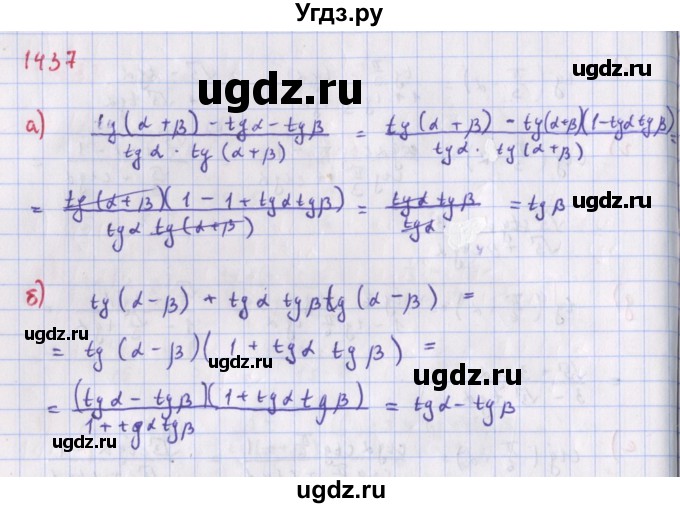 Угдз.ру
1437
ugdz.ru
а) tg(α+β) - tgα - tgβ / tgα · tg(α+β) = tg(α+β) - tg(α+β)(1-tgα tgβ) / tgα · tg(α+β) =
ugdz.ru
= tg(α+β)(1-1+tgα tgβ) / tgα tg(α+β) = tgα tgβ / tgα = tgβ
ugdz.ru
б) tg(α-β) + tgα tgβ tg(α-β) =
ugdz.ru
= tg(α-β)(1+tgα tgβ) =
ugdz.ru
= (tgα-tgβ)(1+tgα tgβ) / 1+tgα tgβ = tgα-tgβ
ugdz.ru
ugdz.ru
ugdz.ru